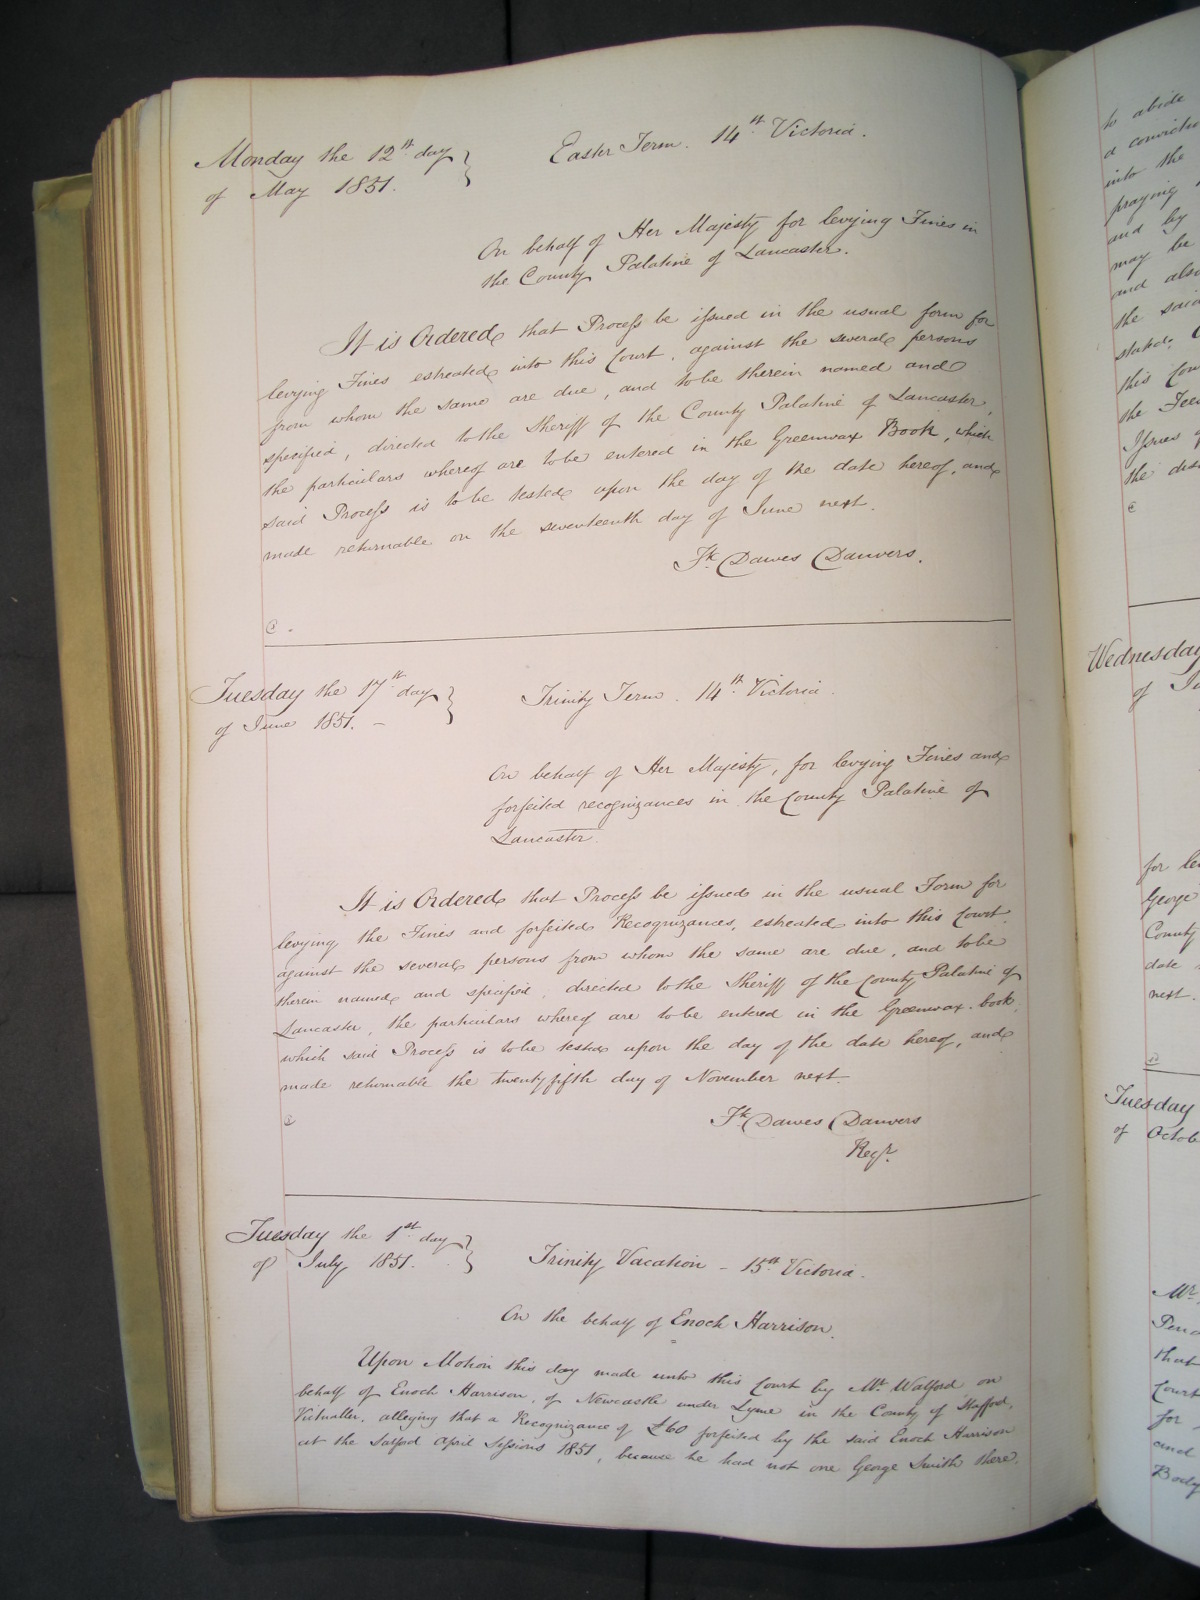 Monday the 12th day
of May 1851.
Easter Term. 14th Victoria.
On behalf of Her Majesty for levying Fines in
the County Palatine of Lancaster.
It is Ordered that Process be issued in the usual form for
levying Fines estreated into this Court, against the several persons
from whom the same are due, and to be therein named and
specified, directed to the Sheriff of the County Palatine of Lancaster,
the particulars whereof are to be entered in the Greenwax Book, which
said Process is to be tested upon the day of the date hereof, and
made returnable on the seventeenth day of June next.
Fk. Dawes Danvers.
Tuesday the 17th day
of June 1851. –
Trinity Term. 14th Victoria.
On behalf of Her Majesty, for levying Fines and
forfeited recognizances in the County Palatine of
Lancaster.
It is Ordered that Process be issued in the usual Form for
levying the Fines and forfeited Recognizances, estreated into this Court
against the several persons from whom the same are due, and to be
therein named and specified, directed to the Sheriff of the County Palatine of
Lancaster, the particulars whereof are to be entered in the Greenwax book,
which said Process is to be tested upon the day of the date hereof, and
made returnable the twenty fifth day of November next.
Fk. Dawes Danvers
Regr.
Tuesday the 1st day
of July 1851.
Trinity Vacation – 15th Victoria.
On the behalf of Enoch Harrison.
Upon Motion this day made unto this Court by Mr. Walford on
behalf of Enoch Harrison, of Newcastle under Lyme in the County of Stafford,
Victualler, alleging that a Recognizance of £60 forfeited by the said Enoch Harrison
at the Salford April Sessions 1851, because he had not one George Smith there
to abide
a convictio
into the
praying
and by
may be
and also
the said
stated.
this Cou
the Fees
Issues of
the dis
Wednesday
of
for le
George
County
date
next.
Tuesday
of Octob
Mr.
that
Court
for
and
Body